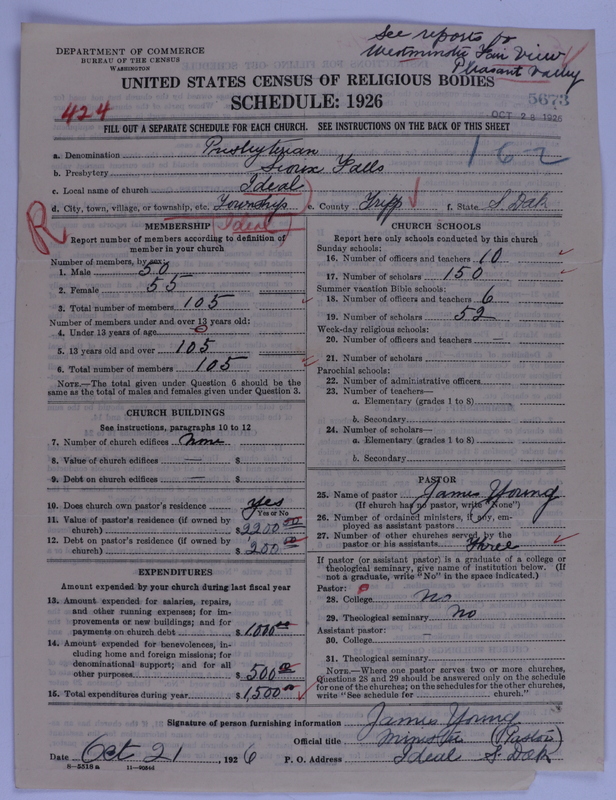 See reports for
Westminster Fair View
Pleasant Valley
DEPARTMENT OF COMMERCE
BUREAU OF THE CENSUS
WASHINGTON
UNITED STATES CENSUS OF RELIGIOUS BODIES
SCHEDULE: 1926
424
5673
OCT 28 1926
FILL OUT A SEPARATE SCHEDULE FOR EACH CHURCH. SEE INSTRUCTIONS ON THE BACK OF THIS SHEET
162
a. Denomination Presbyterian
b. Presbytery Sioux Falls
c. Local name of church Ideal
d. City, town, village, or township, etc. Township e. County Tripp f. State S. Dak
R
(Ideal)
MEMBERSHIP
Report number of members according to definition of
member in your church
Number of members, by sex:
1. Male 50
2. Female 55
3. Total number of members 105
Number of members under and over 13 years old:
4. Under 13 years of age 0
5. 13 years old and over 105
6. Total number of members 105
NOTE.—The total given under Question 6 should be the
same as the total of males and females given under Question 3.
CHURCH BUILDINGS
See instructions, paragraphs 10 to 12
7. Number of church edifices None
8. Value of church edifices — $
9. Debt on church edifices — $
10. Does church own pastor's residence yes
Yes or No
11. Value of pastor's residence (if owned by
church) $2200 00
12. Debt on pastor's residence (if owned by
church) $ 200 00
EXPENDITURES
Amount expended by your church during last fiscal year
13. Amount expended for salaries, repairs,
and other running expenses; for im-
provements or new buildings; and for
payments on church debt $ 1000 00
14. Amount expended for benevolences, in-
cluding home and foreign missions; for
denominational support; and for all
other purposes $ 500 00
15. Total expenditures during year $ 1,500 00
CHURCH SCHOOLS
Report here only schools conducted by this church
Sunday schools:
16. Number of officers and teachers 10
17. Number of scholars 150
Summer vacation Bible schools:
18. Number of officers and teachers 6
19. Number of scholars 52
Week-day religious schools:
20. Number of officers and teachers —
21. Number of scholars
Parochial schools:
22. Number of administrative officers
23. Number of teachers—
a. Elementary (grades 1 to 8)
b. Secondary
24. Number of scholars—
a. Elementary (grades 1 to 8)
b. Secondary
PASTOR
25. Name of pastor James Young
(If church has no pastor, write "None")
26. Number of ordained ministers, if any, em-
ployed as assistant pastors
27. Number of other churches served by the
pastor or his assistants three
If pastor (or assistant pastor) is a graduate of a college or
theological seminary, give name of institution below. (If
not a graduate, write "No" in the space indicated.)
Pastor:
28. College No
29. Theological seminary No
Assistant pastor:
30. College —
31. Theological seminary
NOTE.—Where one pastor serves two or more churches,
Questions 28 and 29 should be answered only on the schedule
for one of the churches; on the schedules for the other churches,
write "See schedule for church."
Signature of person furnishing information James Young
Official title Minister (Pastor)
Date Oct 21, 1926 P. O. Address Ideal S. Dak
8-5518 a